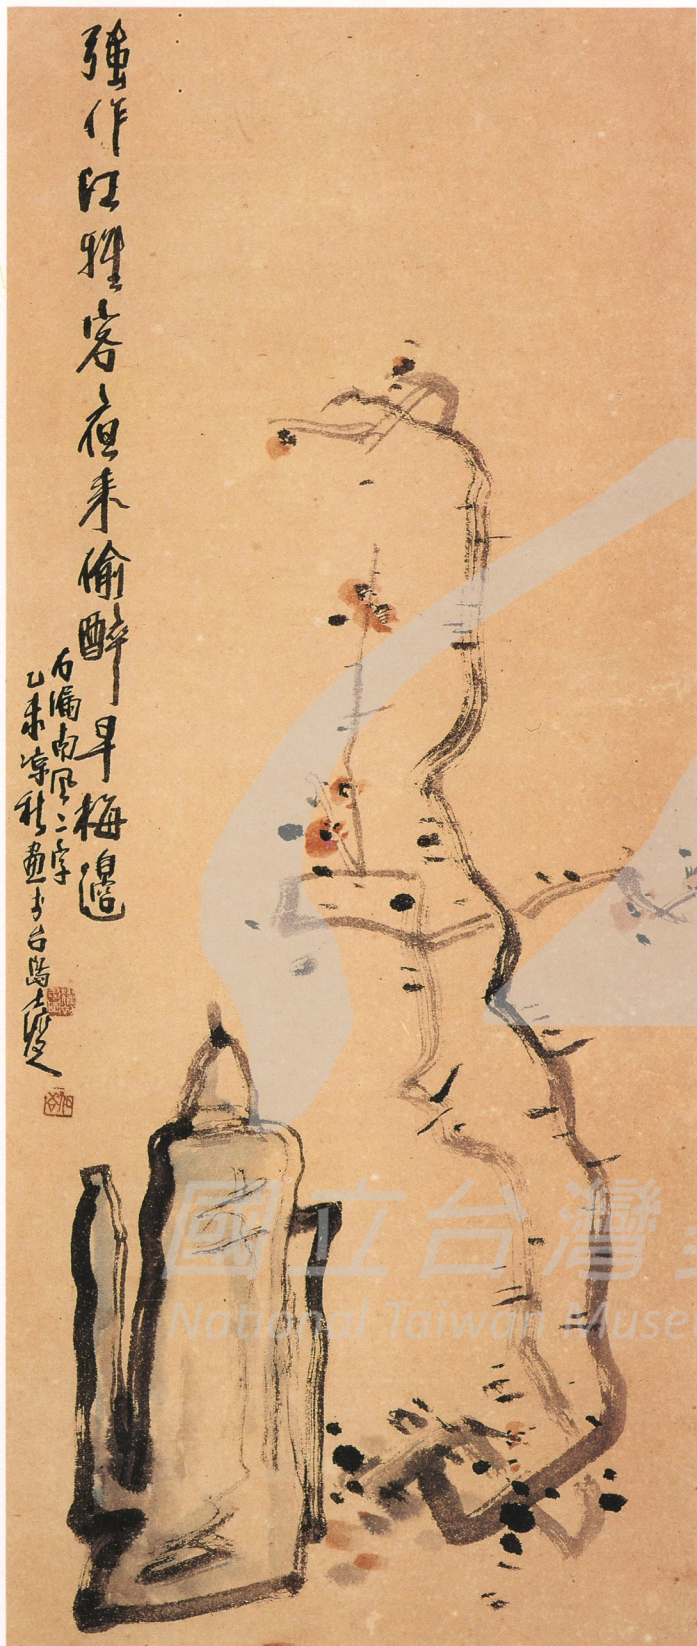 強作江雅客夜來偷醉早梅邊
右漏南風二字
乙未凉秋畫于台島
國立台灣
National Taiwan Muse